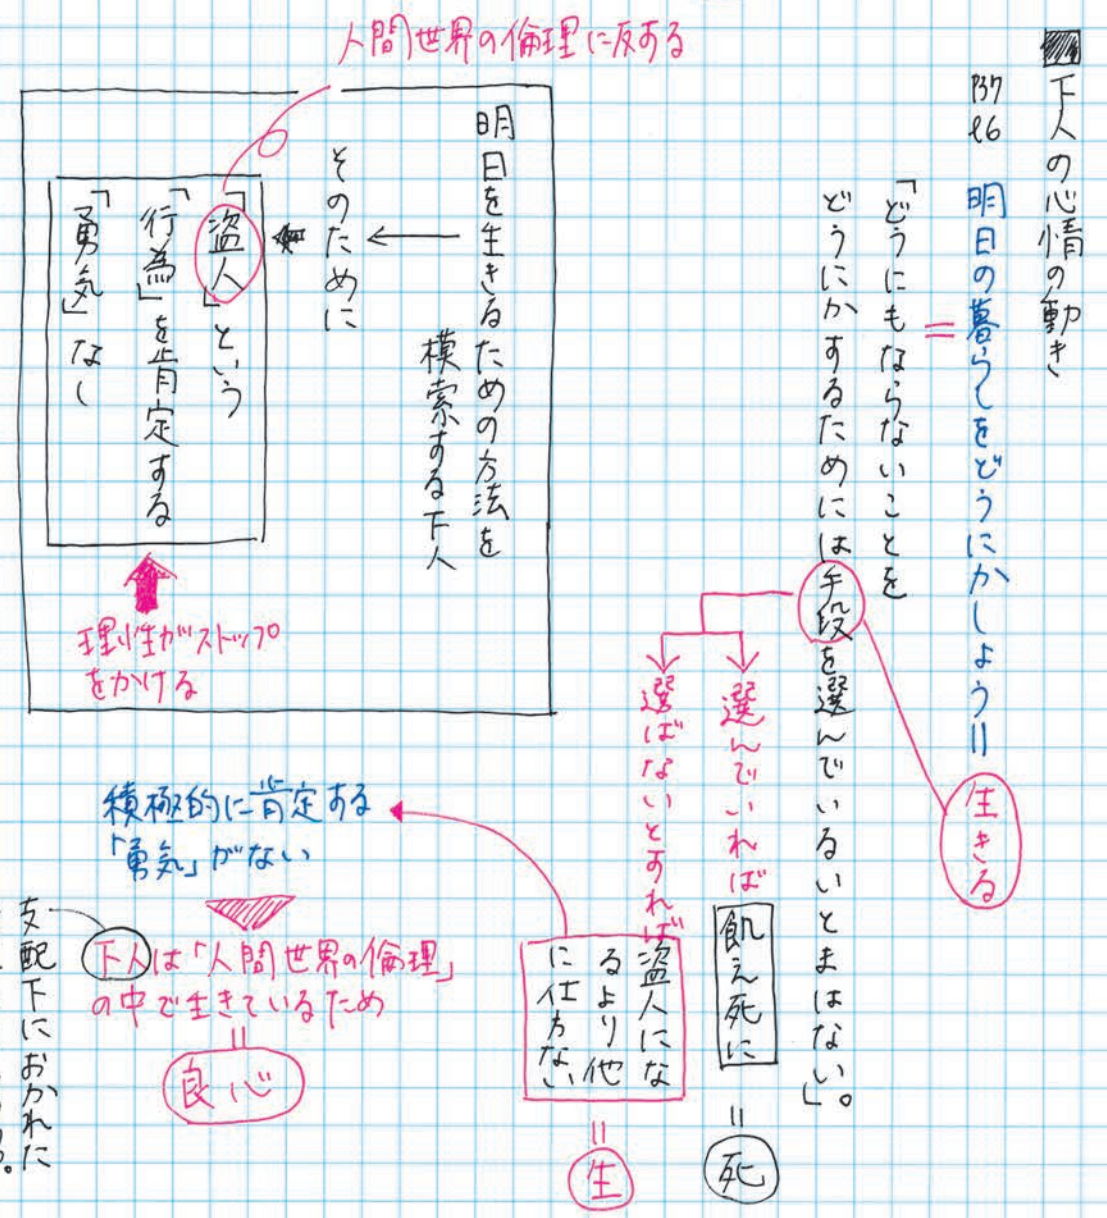 下人の心情の動き
P37
l6
明日の暮らしをどうにかしよう=
生きる
=
「どうにもならないことを
どうにかするためには手段を選んでいるいとまはない」。
選んでいれば
飢え死に
=
死
選ばないとすれば
盗人にな
るより他
に仕方ない
=
生
人間世界の倫理に反する
明日を生きるための方法を
模索する下人
そのために
「盗人」という
「行為」を肯定する
「勇気」なし
理性がストップ
をかける
積極的に肯定する
「勇気」がない
下人は「人間世界の倫理」
の中で生きているため
=
良心
支配下におかれた